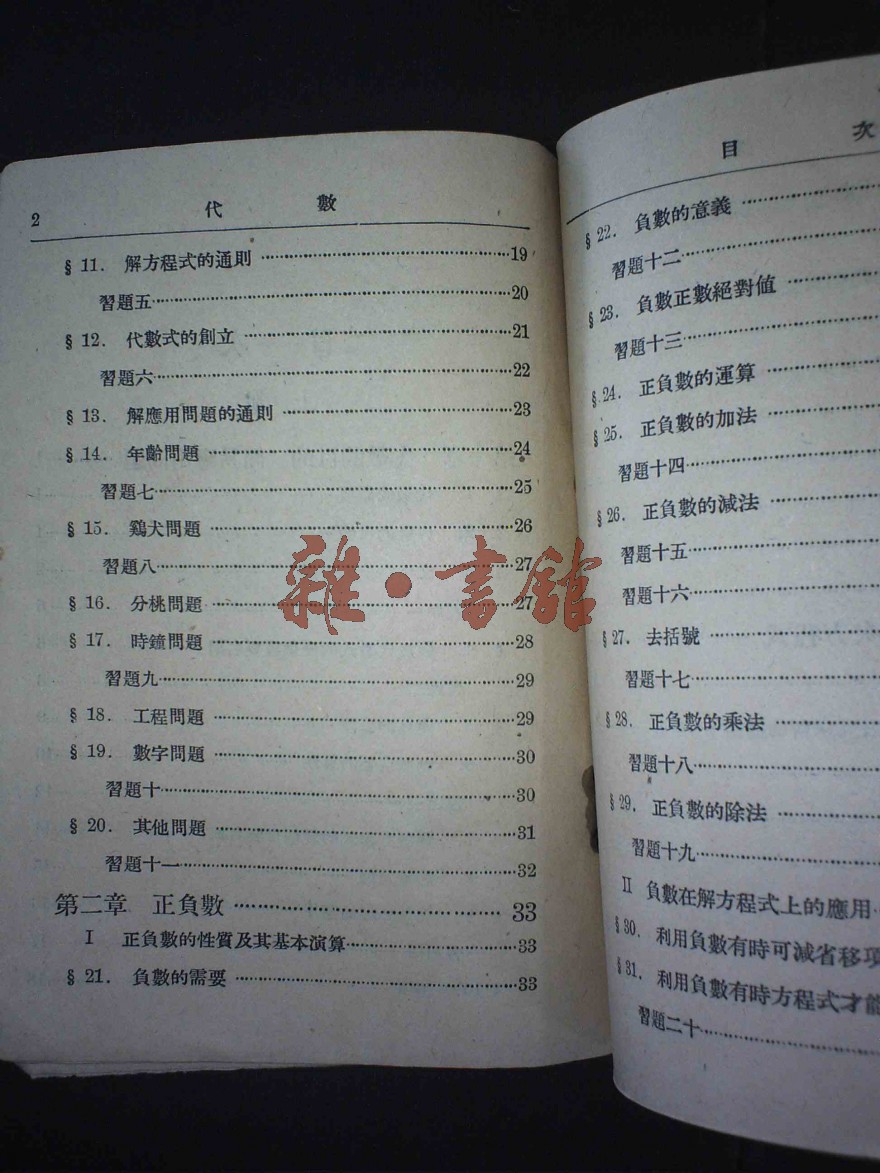 2 代 數
§ 11. 解方程式的通則 ……19
習題五……20
§ 12. 代數式的創立 ……21
習題六……22
§ 13. 解應用問題的通則 ……23
§ 14. 年齡問題 ……24
習題七……25
§ 15. 鷄犬問題 ……26
習題八……27
§ 16. 分桃問題……27
§ 17. 時鐘問題 ……28
習題九……29
§ 18. 工程問題 ……29
§ 19. 數字問題 ……30
習題十……30
§ 20. 其他問題 ……31
習題十一……32
第二章 正負數 …… 33
I 正負數的性質及其基本演算……33
§ 21. 負數的需要 ……33
目 次
§ 22. 負數的意義 ……
習題十二……
§ 23. 負數正數絕對值 ……
習題十三……
§ 24. 正負數的運算 ……
§ 25. 正負數的加法 ……
習題十四……
§ 26. 正負數的減法 ……
習題十五……
習題十六……
§ 27. 去括號 ……
習題十七……
§ 28. 正負數的乘法 ……
習題十八……
§ 29. 正負數的除法 ……
習題十九……
II 負數在解方程式上的應用……
§ 30. 利用負數有時可減省移項
§ 31. 利用負數有時方程式才能
習題二十……
雜·書館